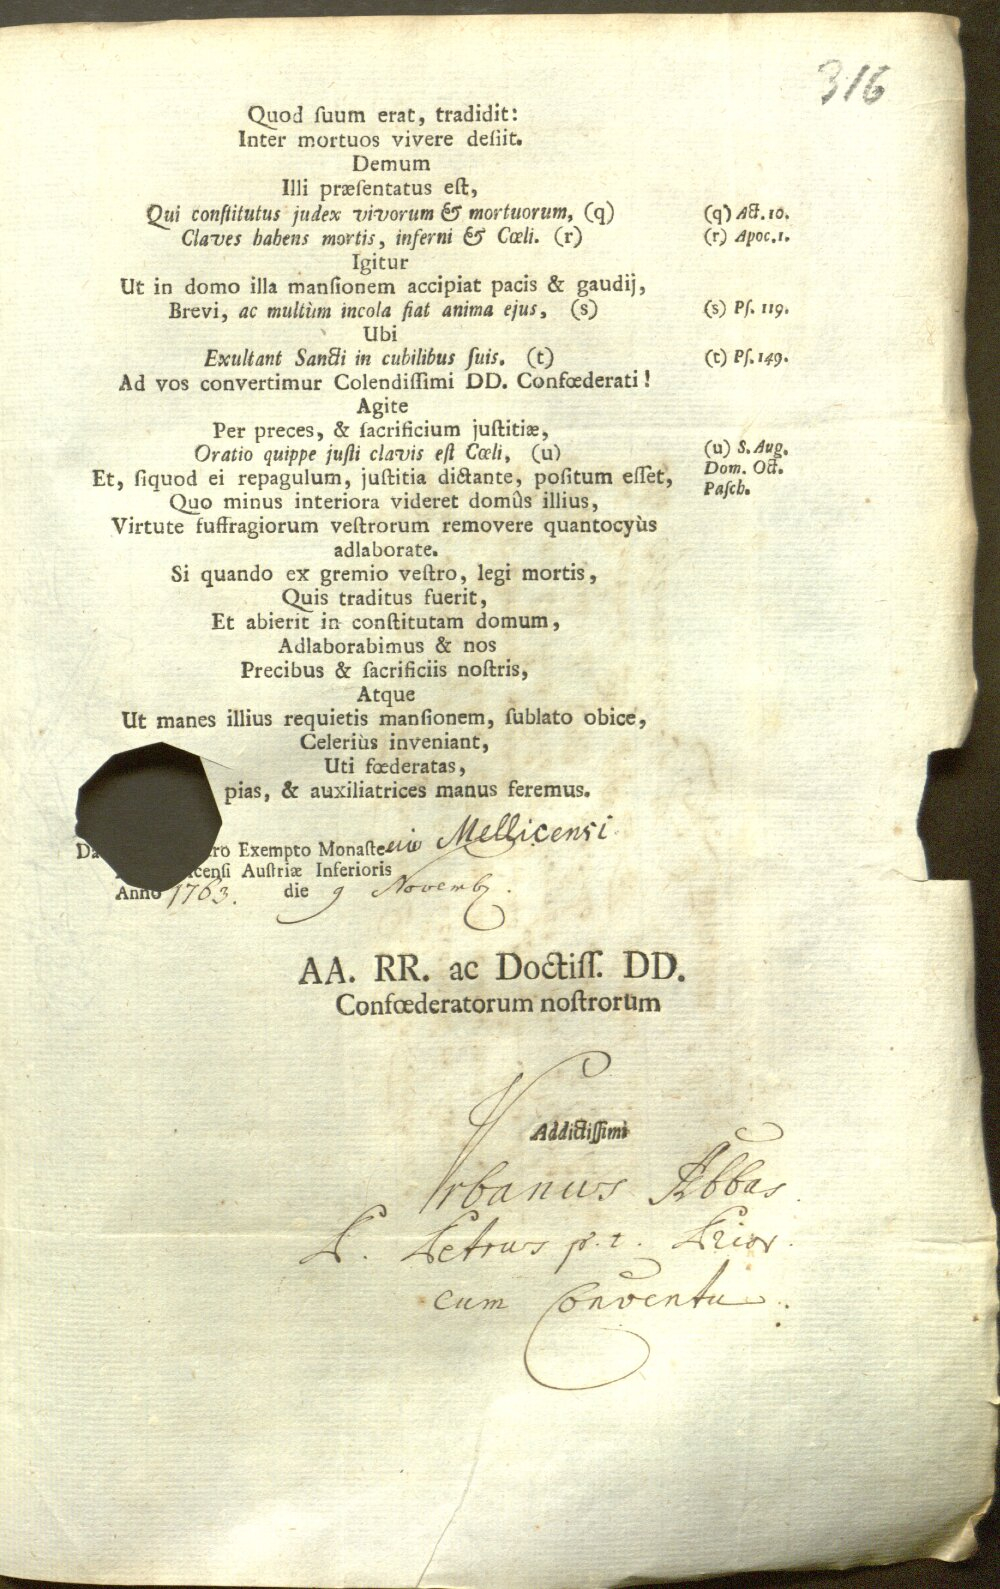 316
Quod ſuum erat, tradidit:
Inter mortuos vivere deſiit.
Demum
Illi præſentatus eſt,
Qui conſtitutus judex vivorum & mortuorum, (q) (q) Act. 10.
Claves habens mortis, inferni & Cœli. (r) (r) Apoc. 1.
Igitur
Ut in domo illa manſionem accipiat pacis & gaudij,
Brevi, ac multùm incola fiat anima ejus, (s) (s) Pſ. 119.
Ubi
Exultant Sancti in cubilibus ſuis. (t) (t) Pſ. 149.
Ad vos convertimur Colendiſſimi DD. Confœderati!
Agite
Per preces, & ſacrificium juſtitiæ,
Oratio quippe juſti clavis eſt Cœli, (u) (u) S. Aug.
Dom. Oct.
Paſch.
Et, ſiquod ei repagulum, juſtitia dictante, poſitum eſſet,
Quo minus interiora videret domûs illius,
Virtute ſuffragiorum veſtrorum removere quantocyùs
adlaborate.
Si quando ex gremio veſtro, legi mortis,
Quis traditus fuerit,
Et abierit in conſtitutam domum,
Adlaborabimus & nos
Precibus & ſacrificiis noſtris,
Atque
Ut manes illius requietis manſionem, ſublato obice,
Celeriùs inveniant,
Uti fœderatas,
pias, & auxiliatrices manus feremus.
Da ro Exempto Monaſterio Mellicensi
icenſi Auſtriæ Inferioris
Anno 1763. die 9 Novemb.
AA. RR. ac Doctiſſ. DD.
Confœderatorum noſtrorum
Addictiſſimi
Urbanus Abbas.
P. Petrus p. t. Prior.
cum Conventu.